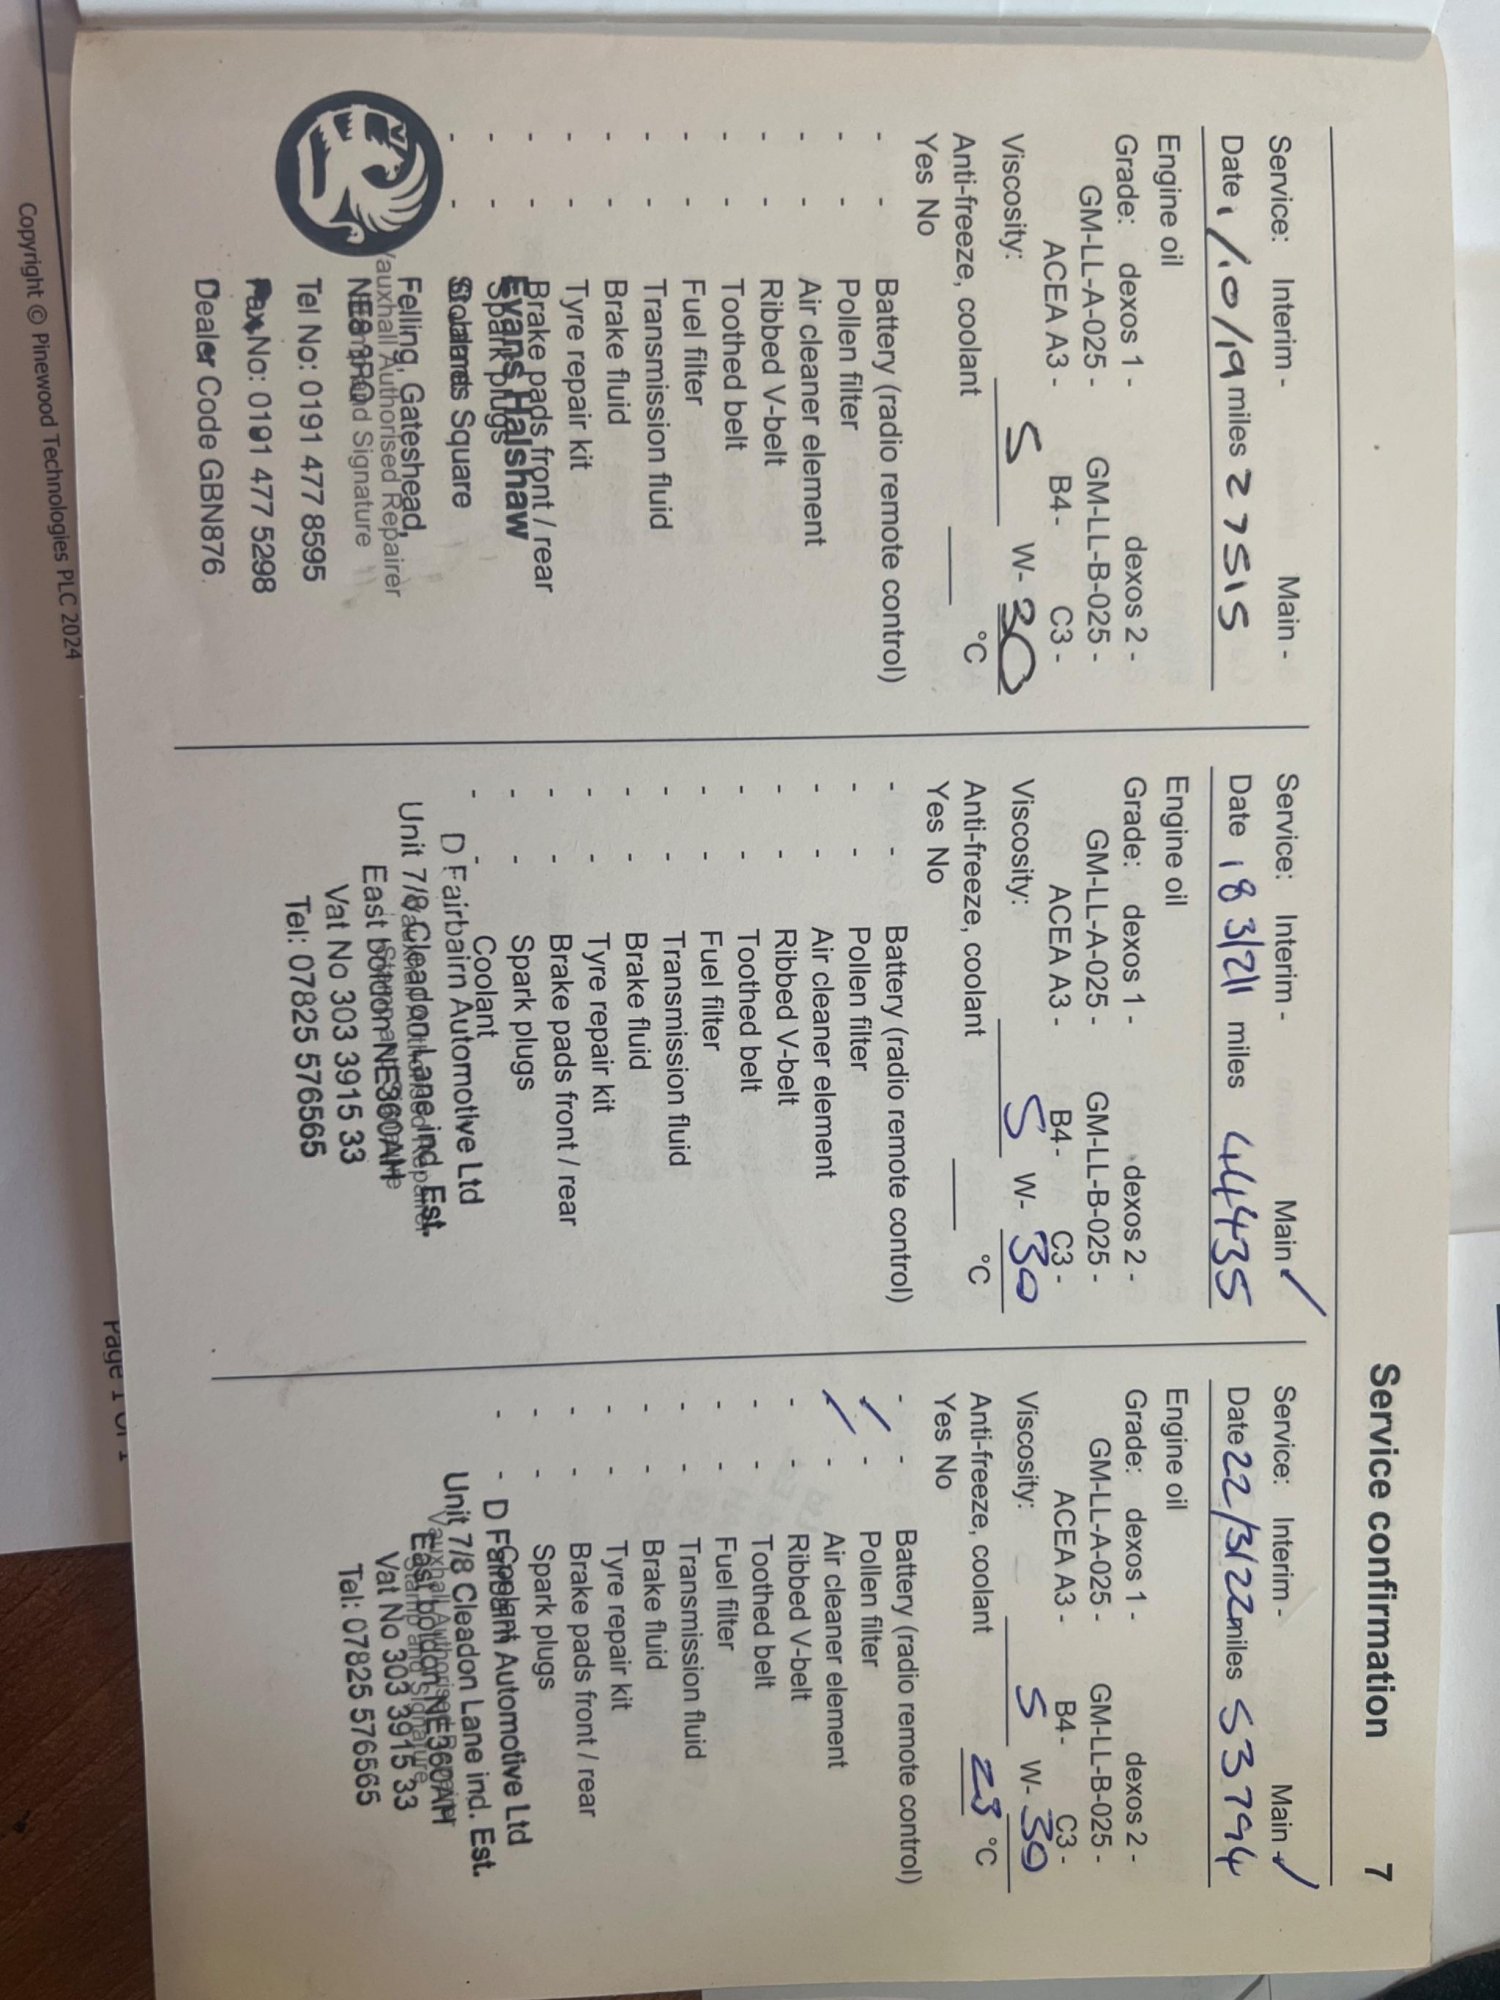 Service confirmation 7
Service: Interim - Main -
Date 1/10/19 miles 27515
Engine oil
Grade: dexos 1 - dexos 2 -
GM-LL-A-025 - GM-LL-B-025 -
ACEA A3 - B4 - C3 -
Viscosity: 5 W- 30
Anti-freeze, coolant °C
Yes No
- - Battery (radio remote control)
- - Pollen filter
- - Air cleaner element
- - Ribbed V-belt
- - Toothed belt
- - Fuel filter
- - Transmission fluid
- - Brake fluid
- - Tyre repair kit
- - Brake pads front / rear
Evans Halshaw
- - Spark plugs
- - Square
Felling, Gateshead,
Vauxhall Authorised Repairer
NE8 3RO
Signature
Tel No: 0191 477 8595
Fax No: 0191 477 5298
Dealer Code GBN876
Service: Interim - Main ✓
Date 18 3/21 miles 44435
Engine oil
Grade: dexos 1 - dexos 2 -
GM-LL-A-025 - GM-LL-B-025 -
ACEA A3 - B4 - C3 -
Viscosity: 5 W- 30
Anti-freeze, coolant °C
Yes No
- - Battery (radio remote control)
- - Pollen filter
- - Air cleaner element
- - Ribbed V-belt
- - Toothed belt
- - Fuel filter
- - Transmission fluid
- - Brake fluid
- - Tyre repair kit
- - Brake pads front / rear
- - Spark plugs
- - Coolant
D Fairbairn Automotive Ltd
Unit 7/8 Cleadon Lane ind. Est.
East boldon NE360AH
Vat No 303 3915 33
Tel: 07825 576565
Service: Interim - Main ✓
Date 22/3/22 miles 53794
Engine oil
Grade: dexos 1 - dexos 2 -
GM-LL-A-025 - GM-LL-B-025 -
ACEA A3 - B4 - C3 -
Viscosity: 5 W- 30
Anti-freeze, coolant 23 °C
Yes No
- - Battery (radio remote control)
✓ - Pollen filter
✓ - Air cleaner element
- - Ribbed V-belt
- - Toothed belt
- - Fuel filter
- - Transmission fluid
- - Brake fluid
- - Tyre repair kit
- - Brake pads front / rear
- - Spark plugs
- - Coolant
D Fairbairn Automotive Ltd
Unit 7/8 Cleadon Lane ind. Est.
Vauxhall Authorised Repairer
East boldon NE360AH
Stamp and Signature
Vat No 303 3915 33
Tel: 07825 576565
Copyright © Pinewood Technologies PLC 2024
Page 1 of 1